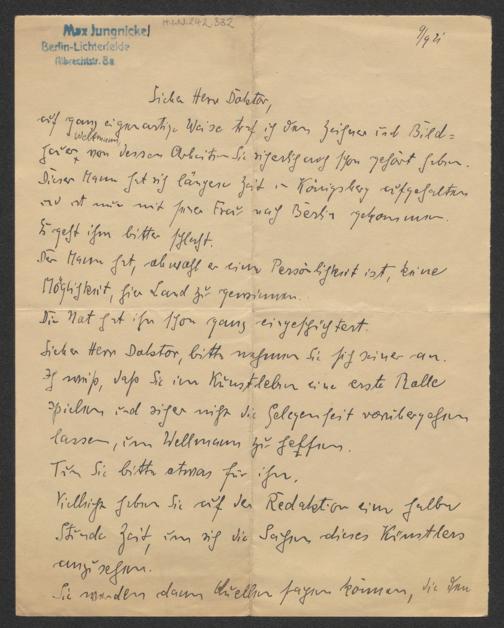 Max Jungnickel
Berlin-Lichterfelde
Albrechtstr. 8a
H.I.N.242.332
9/9 21
Lieber Herr Doktor,
auf ganz eigenartige Weise traf ich den Zeichner und Bild=
hauer Wellmann, von dessen Arbeiten Sie sicherlich auch schon gehört haben.
Dieser Mann hat sich längere Zeit in Königsberg aufgehalten
und ist nun mit seiner Frau nach Berlin gekommen.
Es geht ihm bitter schlecht.
Der Mann hat, obwohl er eine Persönlichkeit ist, keine
Möglichkeit, hier Land zu gewinnen.
Die Not hat ihn schon ganz eingeschüchtert.
Lieber Herr Doktor, bitte nehmen Sie sich seiner an.
Ich weiß, daß Sie im Kunstleben eine erste Rolle
spielen und sicher nicht die Gelegenheit vorübergehen
lassen, um Wellmann zu helfen.
Tun Sie bitte etwas für ihn.
Vielleicht haben Sie auf der Redaktion eine halbe
Stunde Zeit, um sich die Sachen dieses Künstlers
anzusehen.
Sie werden dann Quellen sagen können, die den